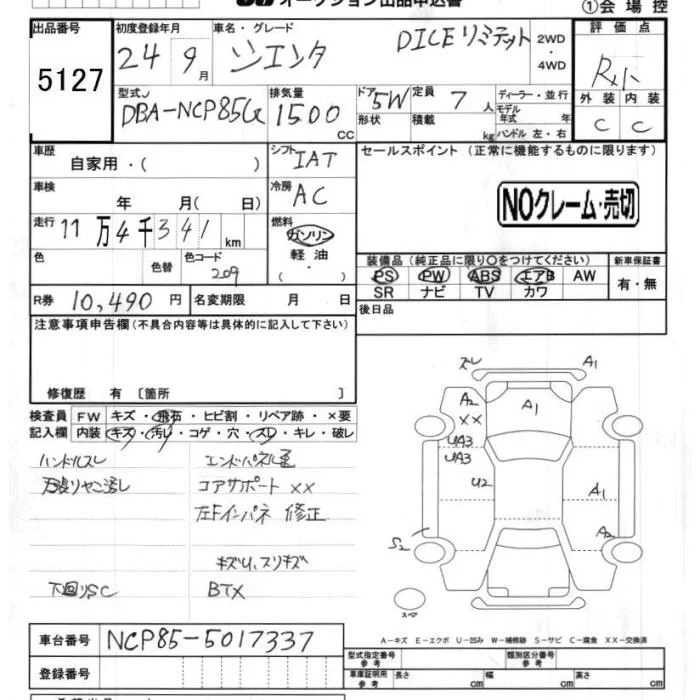 オークション出品申込書
①会場控
出品番号 5127
初度登録年月 24 9月
車名・グレード シエンタ DICEリミテッド
2WD・4WD
評価点 R
外装 C 内装 C
型式 DBA-NCP85G
排気量 1500 cc
ドア形状 5W
定員 7人
積載 kg
ディーラー・並行
モデル年式 年
ハンドル 左・右
車歴 自家用・( )
シフト IAT
セールスポイント (正常に機能するものに限ります)
車検 年 月( 日)
冷房 AC
NOクレーム・売切
走行 11万4千341km
燃料 ガソリン 軽油 ・( )
色 色替 色コード 209
装備品 (純正品に限り○をつけてください)
新車保証書 有・無
PS PW ABS エアB AW
SR ナビ TV カワ
R券 10,490円
名変期限 月 日
後日品
注意事項申告欄(不具合内容等は具体的に記入して下さい)
修復歴 有 [箇所 ]
検査員記入欄
FW キズ・飛石・ヒビ割・リペア跡・×要
内装 キズ・汚レ・コゲ・穴・スレ・キレ・破レ
ハンドルスレ
エンドパネル歪
コアサポート ××
左Fインパネ 修正
キズU,スリキズ
下回りSC
BTX
ズレ
A1
A2
A1
××
UA3
UA3
U2
A1
S2
A2
スペ
A-キズ E-エクボ U-凹み W-補修跡 S-サビ C-腐食 XX-交換済
車台番号 NCP85-5017337
型式指定番号 参考
類別区分番号 参考
登録番号
車庫証明用 参考 長さ cm 幅 cm 高さ cm